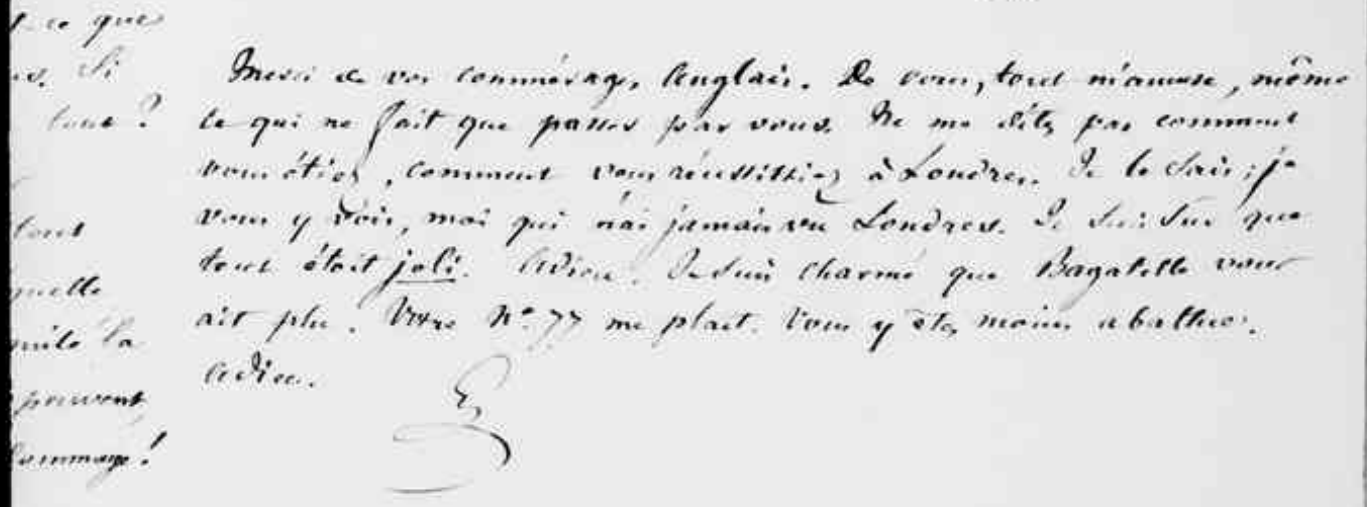 t ce que
us. Si
tout ?
tout
quelle
la
peuvent
dommage !
Merci de vos commérages Anglais. De vous, tout m'amuse, même
ce qui ne fait que passer par vous. Ne me dites pas comment
vous étiez, comment vous réussissiez à Londres. Je le sais ; je
vous y vois, moi qui n'ai jamais vu Londres. Je suis sur que
tout étoit joli. Adieu. Je suis charmé que Bagatelle vous
ait plu. Votre N° 77 me plait. Vous y êtes moins abattue.
Adieu.